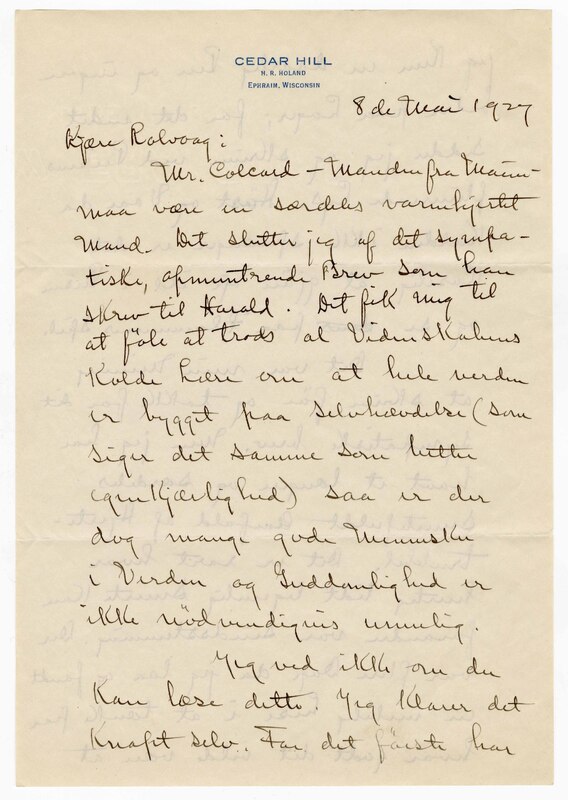 CEDAR HILL
H. R. HOLAND
EPHRAIM, WISCONSIN
8 de Mai 1927
Kjære Rolvaag:
Mr. Colcord – Manden fra Maine –
maa være en særdeles varmhjertet
Mand. Det slutter jeg af det sympa-
tiske, opmuntrende Brev som han
skrev til Harald. Det fik mig til
at föle at trods al Videnskabens
Kolde Lære om at hele verden
er bygget paa selvhævdelse (som
siger det samme som
egenkjærlighed) saa er der
dog mange gode Mennesker
i Verden og Guddomlighed er
ikke nödvendigvis umulig.
Jeg ved ikke om du
Kan læse dette. Jeg Klarer det
Knapt selv. For det förste har